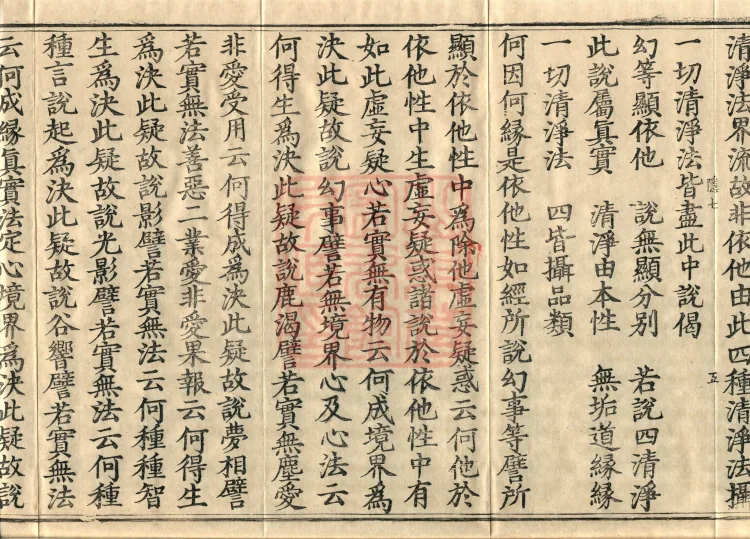 清淨法界流故非依他由此四種清淨法攝
一切清淨法皆盡此中說偈
幻等顯依他　說無顯分別　若說四清淨
此說屬真實　清淨由本性　無垢道緣緣
一切清淨法　四皆攝品類
何因何緣是依他性如經所說幻事等譬所
顯於依他性中為除他虛妄疑惑云何他於
依他性中生虛妄疑惑諸說於依他性中有
如此虛妄疑心若實無有物云何成境界為
決此疑故說幻事譬若無境界心及心法云
何得生為決此疑故說鹿渴譬若實無塵愛
非愛受用云何得成為決此疑故說夢相譬
若實無法善惡二業愛非愛果報云何得生
為決此疑故說影譬若實無法云何種種智
生為決此疑故說光影譬若實無法云何種
種言說起為決此疑故說谷響譬若實無法
云何成緣真實法定心境界為決此疑故說
七
五